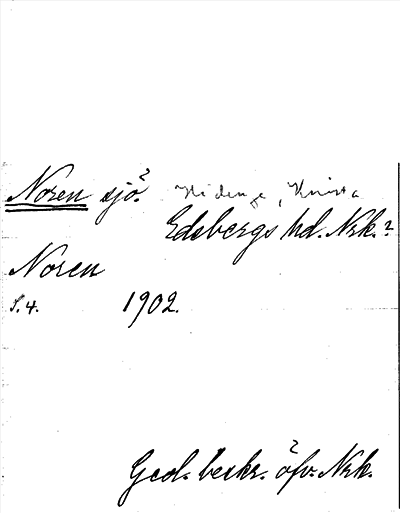 Noren sjö? Hidinge, Knista
Edsbergs hd. Nrk.?
Noren
S. 4. 1902.
Geol. beskr. öfv. Nrk.